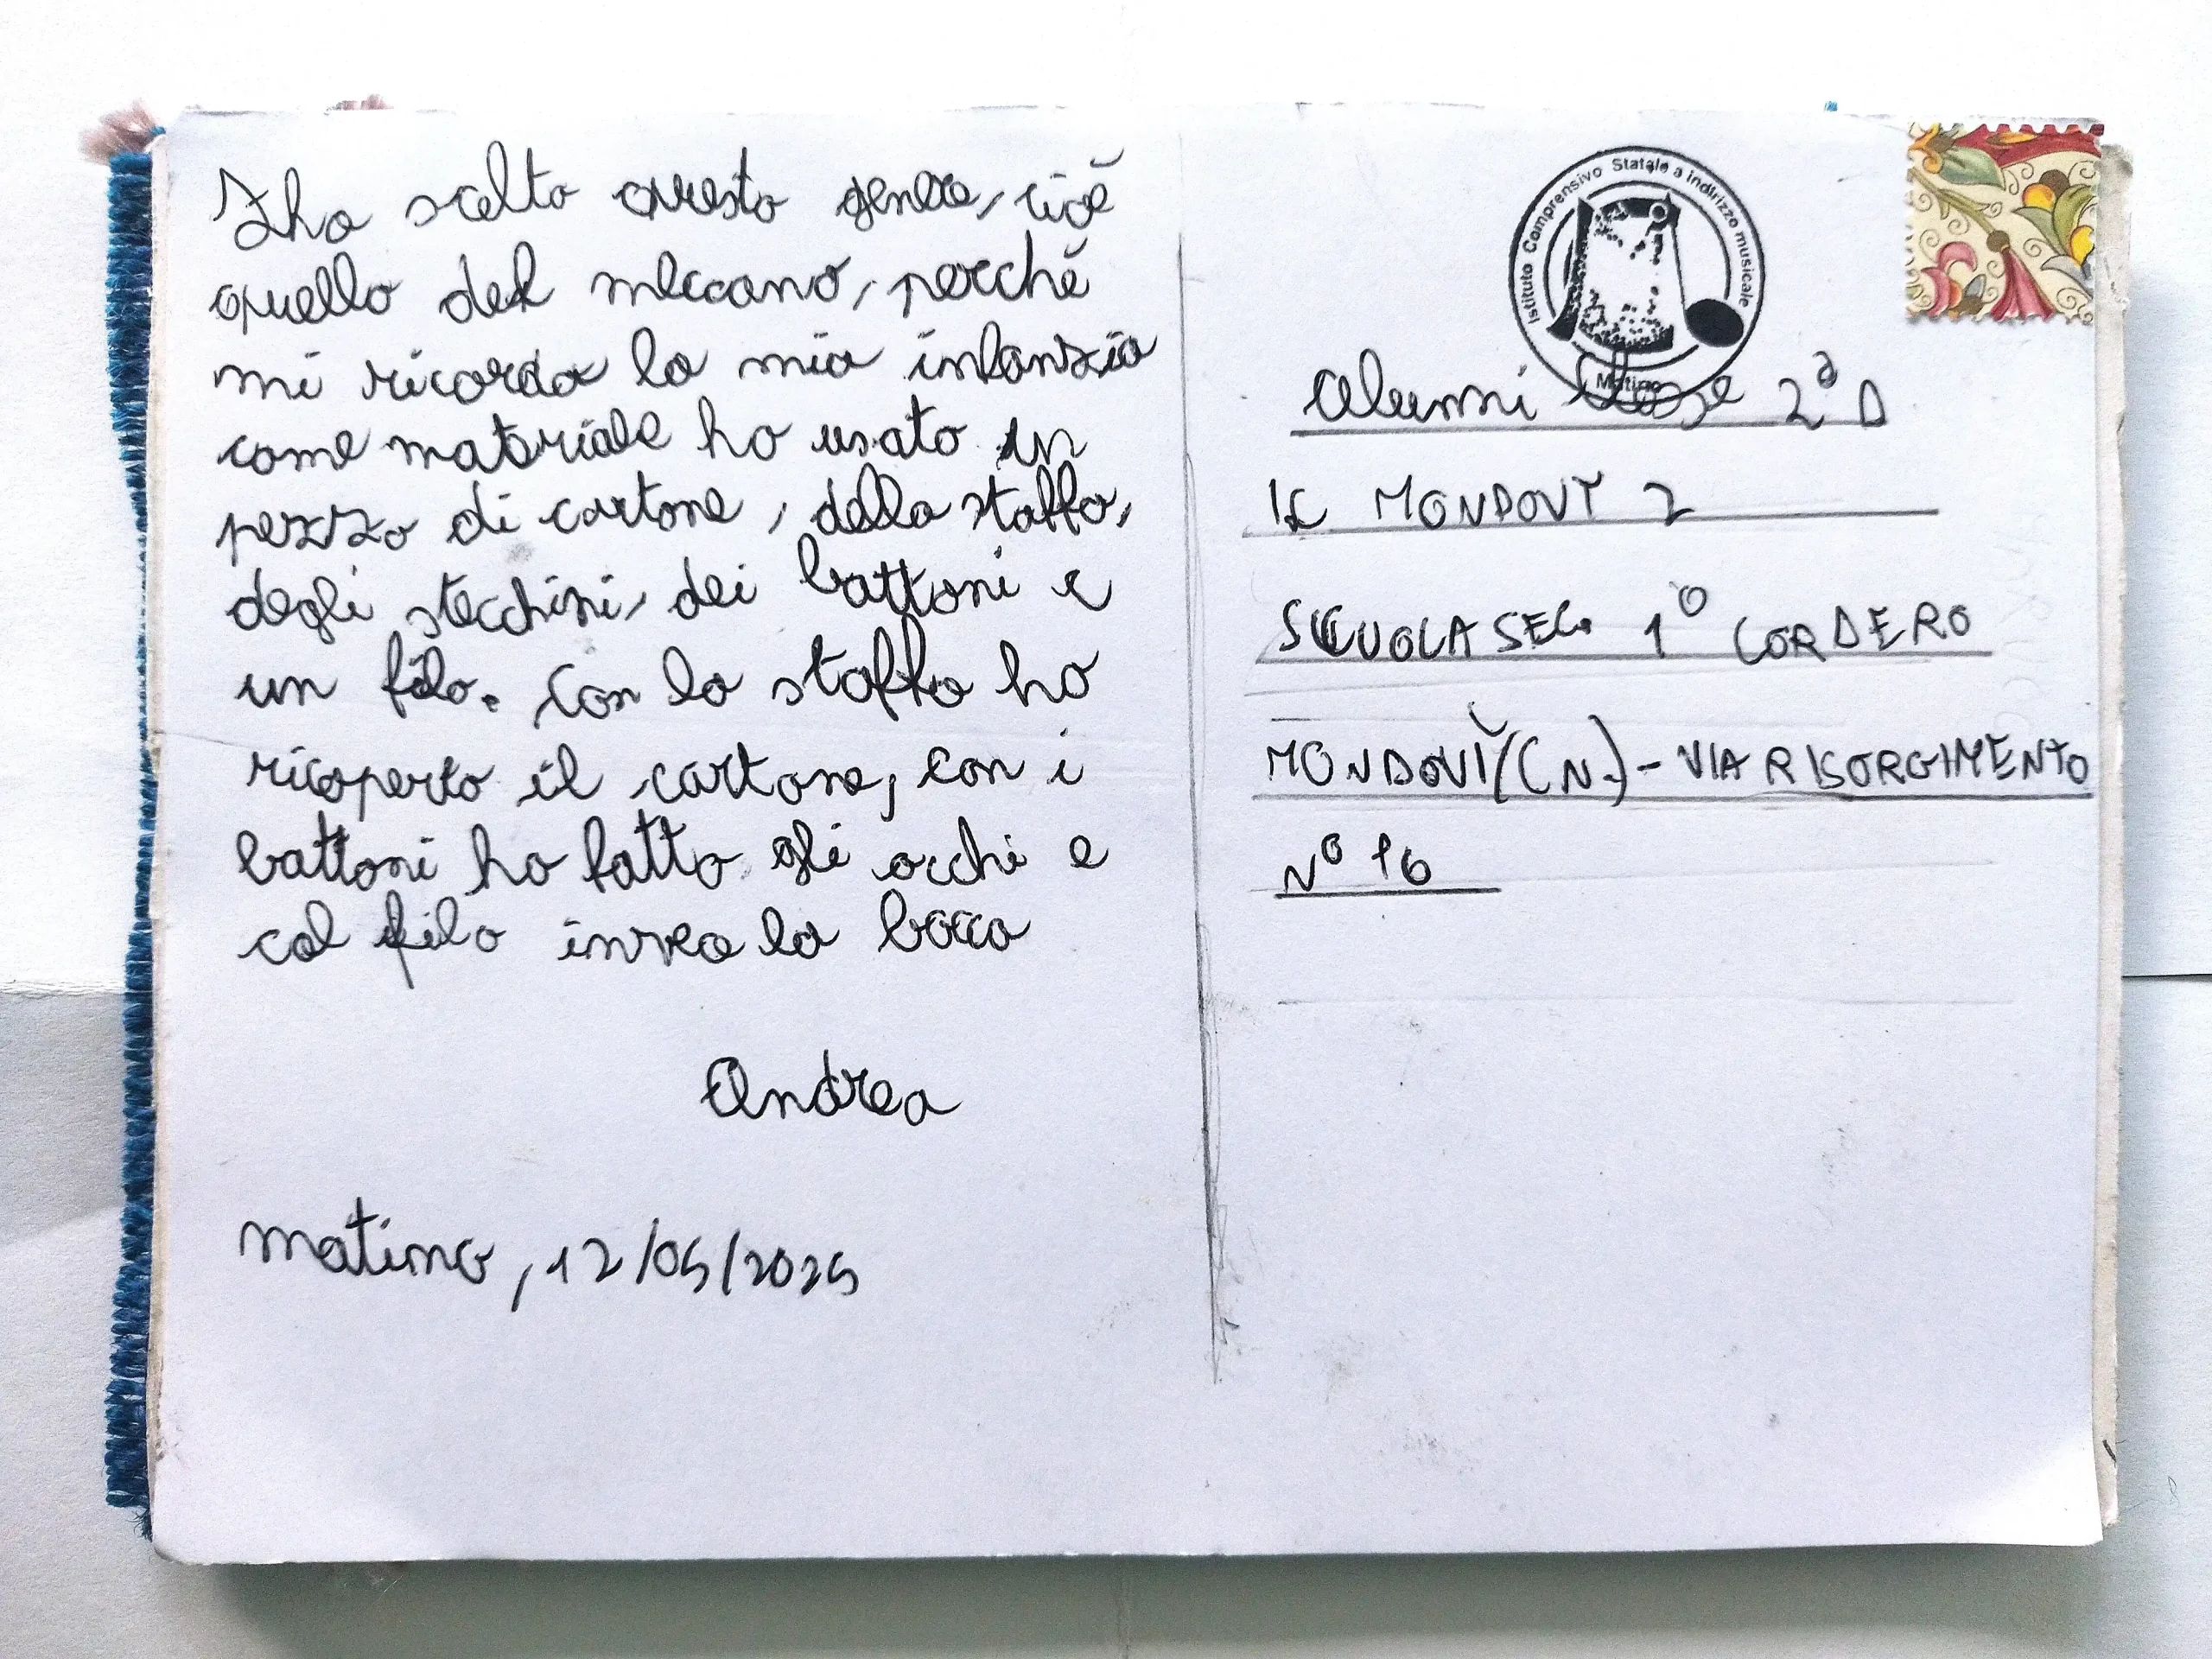 Iho scelto questo genere, cioè
quello del meccano, perché
mi ricorda la mia infanzia
come materiale ho usato un
pezzo di cartone, della stoffa,
degli stecchini, dei bottoni e
un filo. Con la stoffa ho
ricoperto il cartone, con i
bottoni ho fatto gli occhi e
col filo invea la bocca
Andrea
matino, 12/05/2025
Istituto Comprensivo Statale a indirizzo musicale
Matino
Alunni Classe 2ª D
IC MONDOVÌ 2
SCUOLA SEC. 1º CORDERO
MONDOVÌ (CN.) - VIA RISORGIMENTO
Nº 16